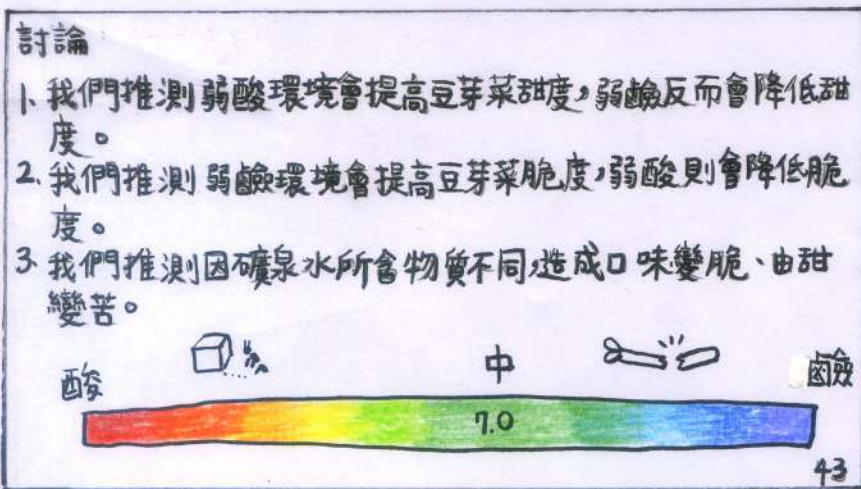 討論
1. 我們推測弱酸環境會提高豆芽菜甜度，弱鹼反而會降低甜
度。
2. 我們推測弱鹼環境會提高豆芽菜脆度，弱酸則會降低脆
度。
3. 我們推測因礦泉水所含物質不同，造成口味變脆、由甜
變苦。
酸 中 鹼
7.0
43